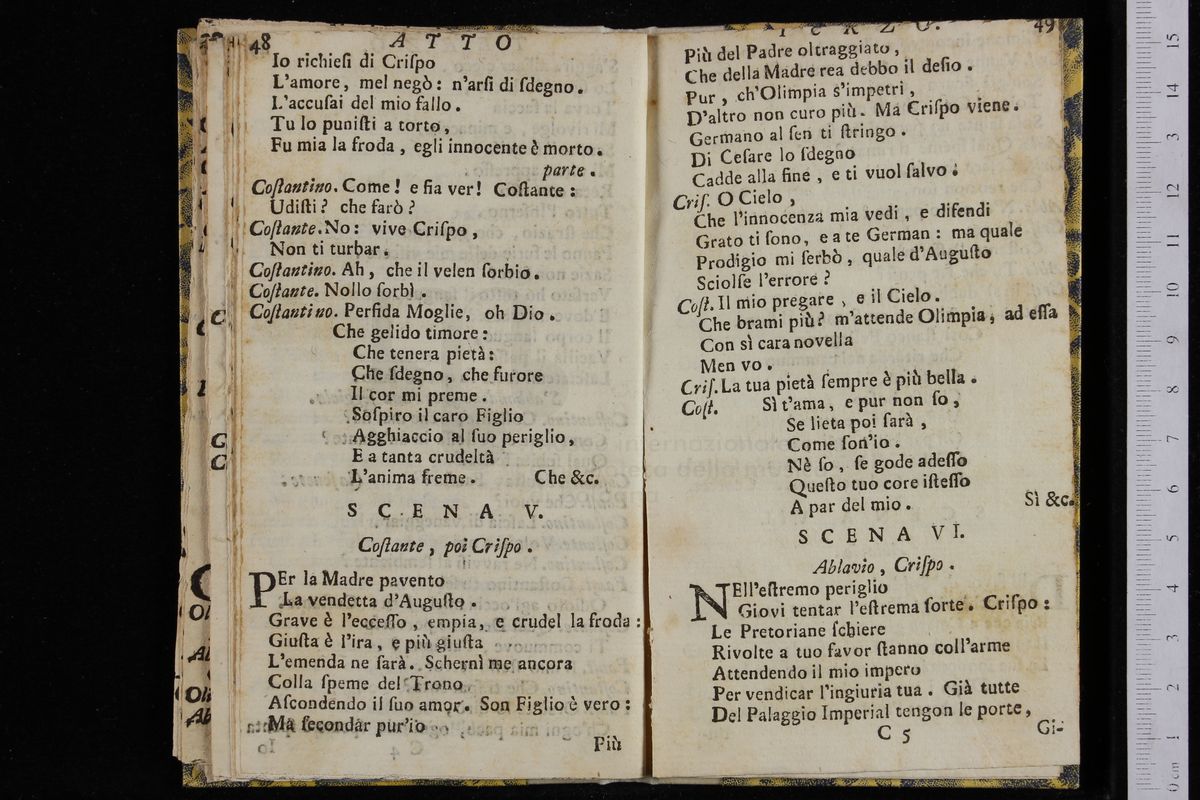 48
A T T O
Io richieſi di Criſpo
L'amore, mel negò: n'arſi di ſdegno.
L'accuſai del mio fallo.
Tu lo puniſti a torto,
Fu mia la froda, egli innocente è morto.
parte.
Coſtantino. Come! e fia ver! Coſtante:
Udiſti? che farò?
Coſtante. No: vive Criſpo,
Non ti turbar.
Coſtantino. Ah, che il velen ſorbìo.
Coſtante. Nollo ſorbì.
Coſtantino. Perfida Moglie, oh Dio.
Che gelido timore:
Che tenera pietà:
Che ſdegno, che furore
Il cor mi preme.
Soſpiro il caro Figlio
Agghiaccio al ſuo periglio,
E a tanta crudeltà
L'anima freme. Che &c.
S C E N A V.
Coſtante, poi Criſpo.
PEr la Madre pavento
La vendetta d'Auguſto.
Grave è l'ecceſſo, empia, e crudel la froda:
Giuſta è l'ira, e più giuſta
L'emenda ne ſarà. Schernì me ancora
Colla ſpeme del Trono
Aſcondendo il ſuo amor. Son Figlio è vero:
Ma ſecondar pur'io
Più
T E R Z O. 49
Più del Padre oltraggiato,
Che della Madre rea debbo il deſio.
Pur, ch'Olimpia s'impetri,
D'altro non curo più. Ma Criſpo viene.
Germano al ſen ti ſtringo.
Di Ceſare lo ſdegno
Cadde alla fine, e ti vuol ſalvo.
Criſ. O Cielo,
Che l'innocenza mia vedi, e difendi
Grato ti ſono, e a te German: ma quale
Prodigio mi ſerbò, quale d'Auguſto
Sciolſe l'errore?
Coſt. Il mio pregare, e il Cielo.
Che brami più? m'attende Olimpia, ad eſſa
Con sì cara novella
Men vo.
Criſ. La tua pietà ſempre è più bella.
Coſt. Sì t'ama, e pur non ſo,
Se lieta poi ſarà,
Come ſon'io.
Nè ſo, ſe gode adeſſo
Queſto tuo core iſteſſo
A par del mio. Sì &c.
S C E N A VI.
Ablavio, Criſpo.
NEll'eſtremo periglio
Giovi tentar l'eſtrema ſorte. Criſpo:
Le Pretoriane ſchiere
Rivolte a tuo favor ſtanno coll'arme
Attendendo il mio impero
Per vendicar l'ingiuria tua. Già tutte
Del Palaggio Imperial tengon le porte,
C 5 Gi-